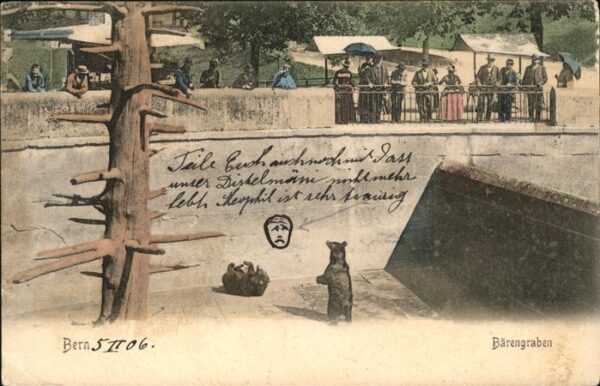 Teile Euch auch noch mit dass
unser Diskelmäni nicht mehr
lebt, Theophil ist sehr traurig
Bern 5 II 06.
Bärengraben